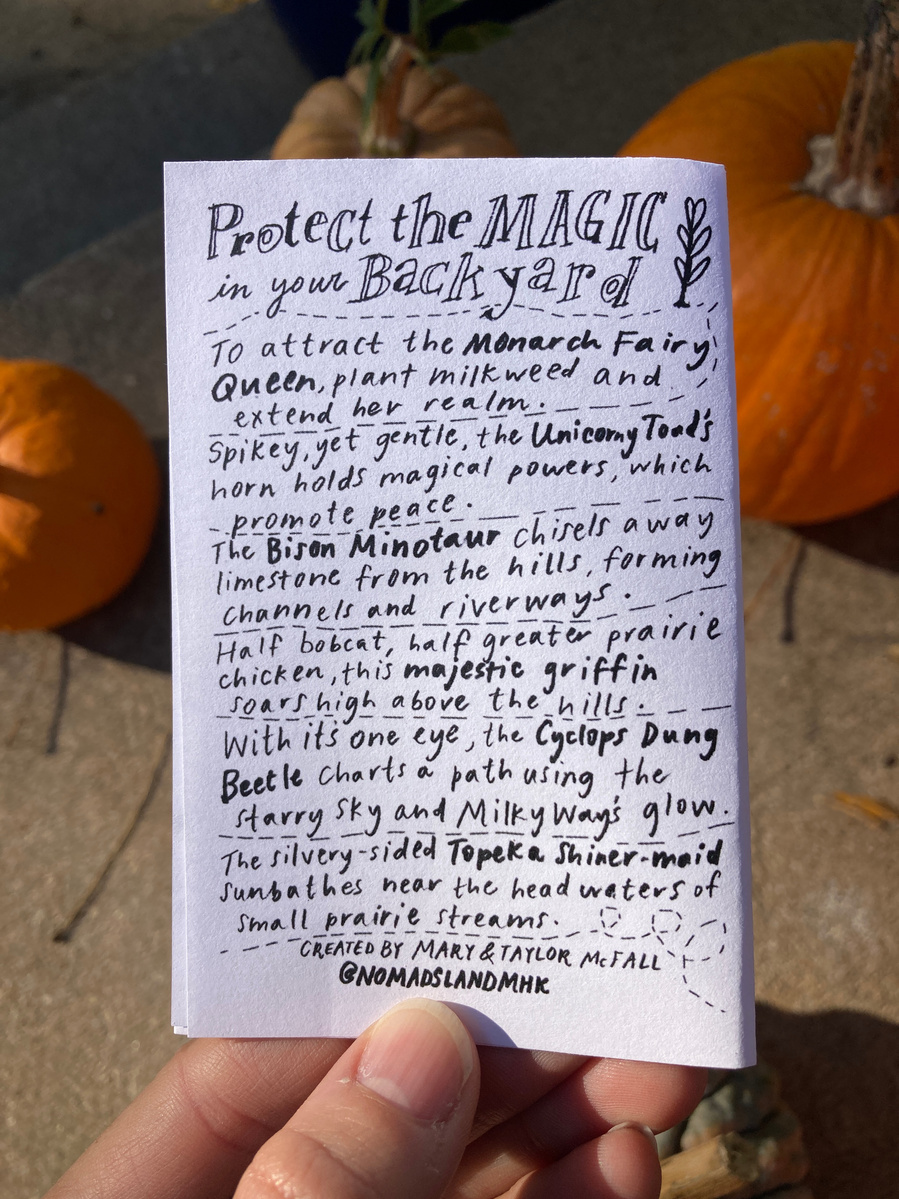 Protect the MAGIC
in your Backyard
To attract the Monarch Fairy
Queen, plant milkweed and
extend her realm.
Spikey, yet gentle, the Unicorny Toad's
horn holds magical powers, which
promote peace.
The Bison Minotaur chisels away
limestone from the hills, forming
channels and riverways.
Half bobcat, half greater prairie
chicken, this majestic griffin
soars high above the hills.
With it's one eye, the Cyclops Dung
Beetle charts a path using the
starry sky and Milky Way's glow.
The silvery-sided Topeka Shiner-maid
sunbathes near the head waters of
small prairie streams.
CREATED BY MARY & TAYLOR McFALL
@NOMADSLANDMHK